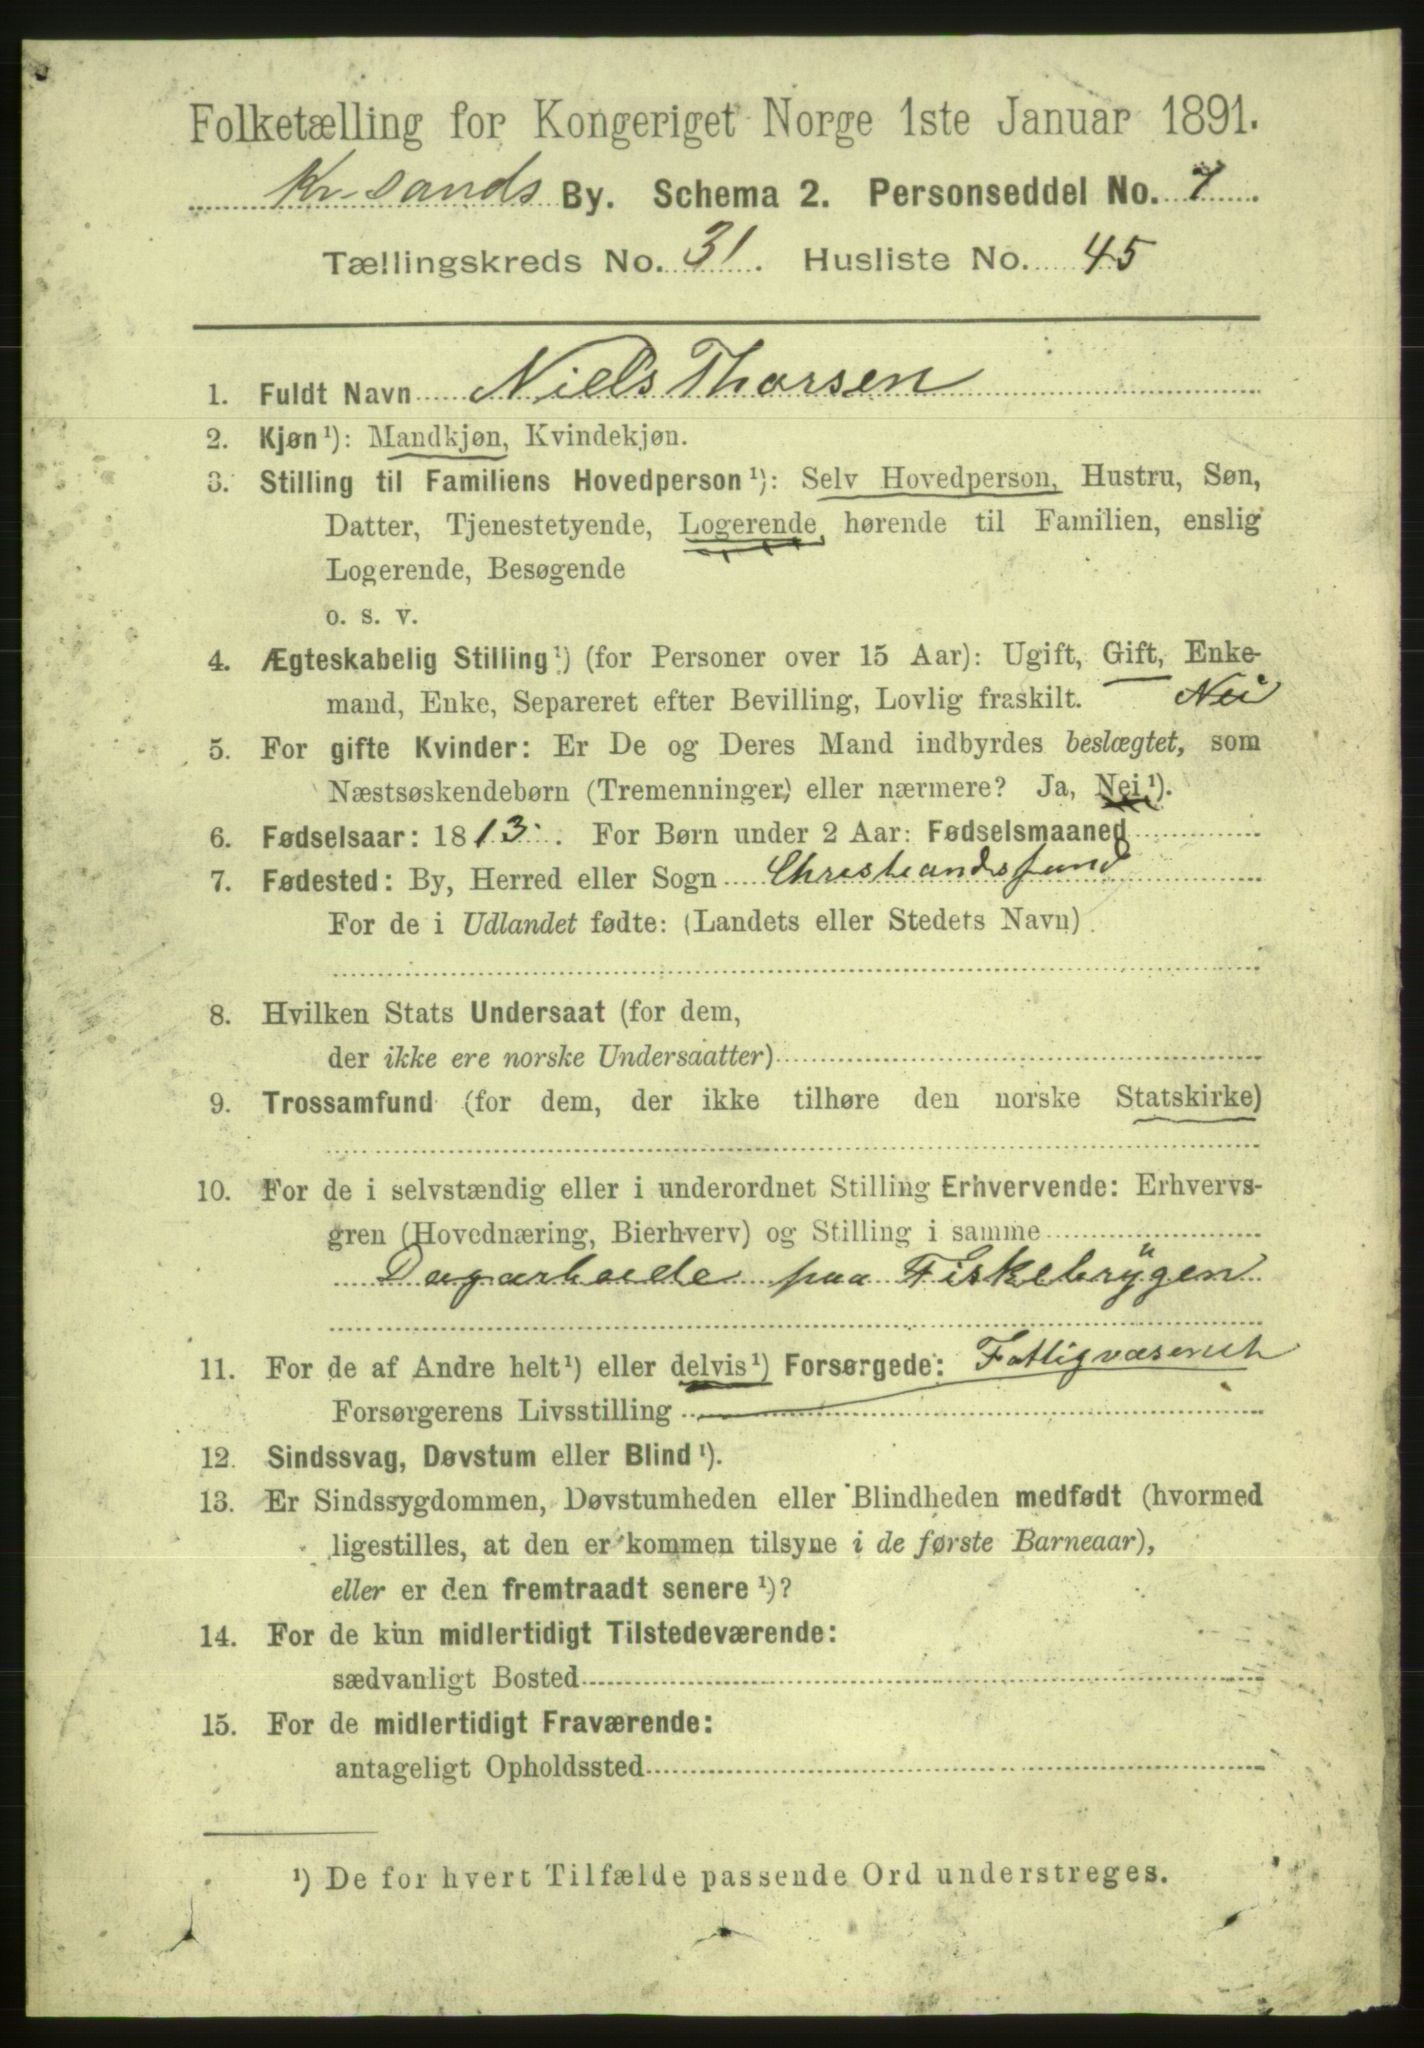 Folketælling for Kongeriget Norge 1ste Januar 1891.
Kr.sands By. Schema 2. Personseddel No. 7.
Tællingskreds No. 31. Husliste No. 45
1. Fuldt Navn Niels Thorsen
2. Kjøn¹): Mandkjøn, Kvindekjøn.
3. Stilling til Familiens Hovedperson¹): Selv Hovedperson, Hustru, Søn,
Datter, Tjenestetyende, Logerende, hørende til Familien, enslig
Logerende, Besøgende
o. s. v.
4. Ægteskabelig Stilling¹) (for Personer over 15 Aar): Ugift, Gift, Enke-
mand, Enke, Separeret efter Bevilling, Lovlig fraskilt. Nei
5. For gifte Kvinder: Er De og Deres Mand indbyrdes beslægtet, som
Næstsøskendebørn (Tremenninger) eller nærmere? Ja, Nei¹).
6. Fødselsaar: 1813. For Børn under 2 Aar: Fødselsmaaned
7. Fødested: By, Herred eller Sogn Christiandsfund
For de i Udlandet fødte: (Landets eller Stedets Navn)
8. Hvilken Stats Undersaat (for dem,
der ikke ere norske Undersaatter)
9. Trossamfund (for dem, der ikke tilhøre den norske Statskirke)
10. For de i selvstændig eller i underordnet Stilling Erhvervende: Erhvervs-
gren (Hovednæring, Bierhverv) og Stilling i samme
Dagarbeide paa Fiskebrÿgen
11. For de af Andre helt¹) eller delvis¹) Forsørgede: Fattigvæsenet
Forsørgerens Livsstilling
12. Sindssvag, Døvstum eller Blind¹).
13. Er Sindssygdommen, Døvstumheden eller Blindheden medfødt (hvormed
ligestilles, at den er kommen tilsyne i de første Barneaar),
eller er den fremtraadt senere¹)?
14. For de kun midlertidigt Tilstedeværende:
sædvanligt Bosted
15. For de midlertidigt Fraværende:
antageligt Opholdssted
¹) De for hvert Tilfælde passende Ord understreges.